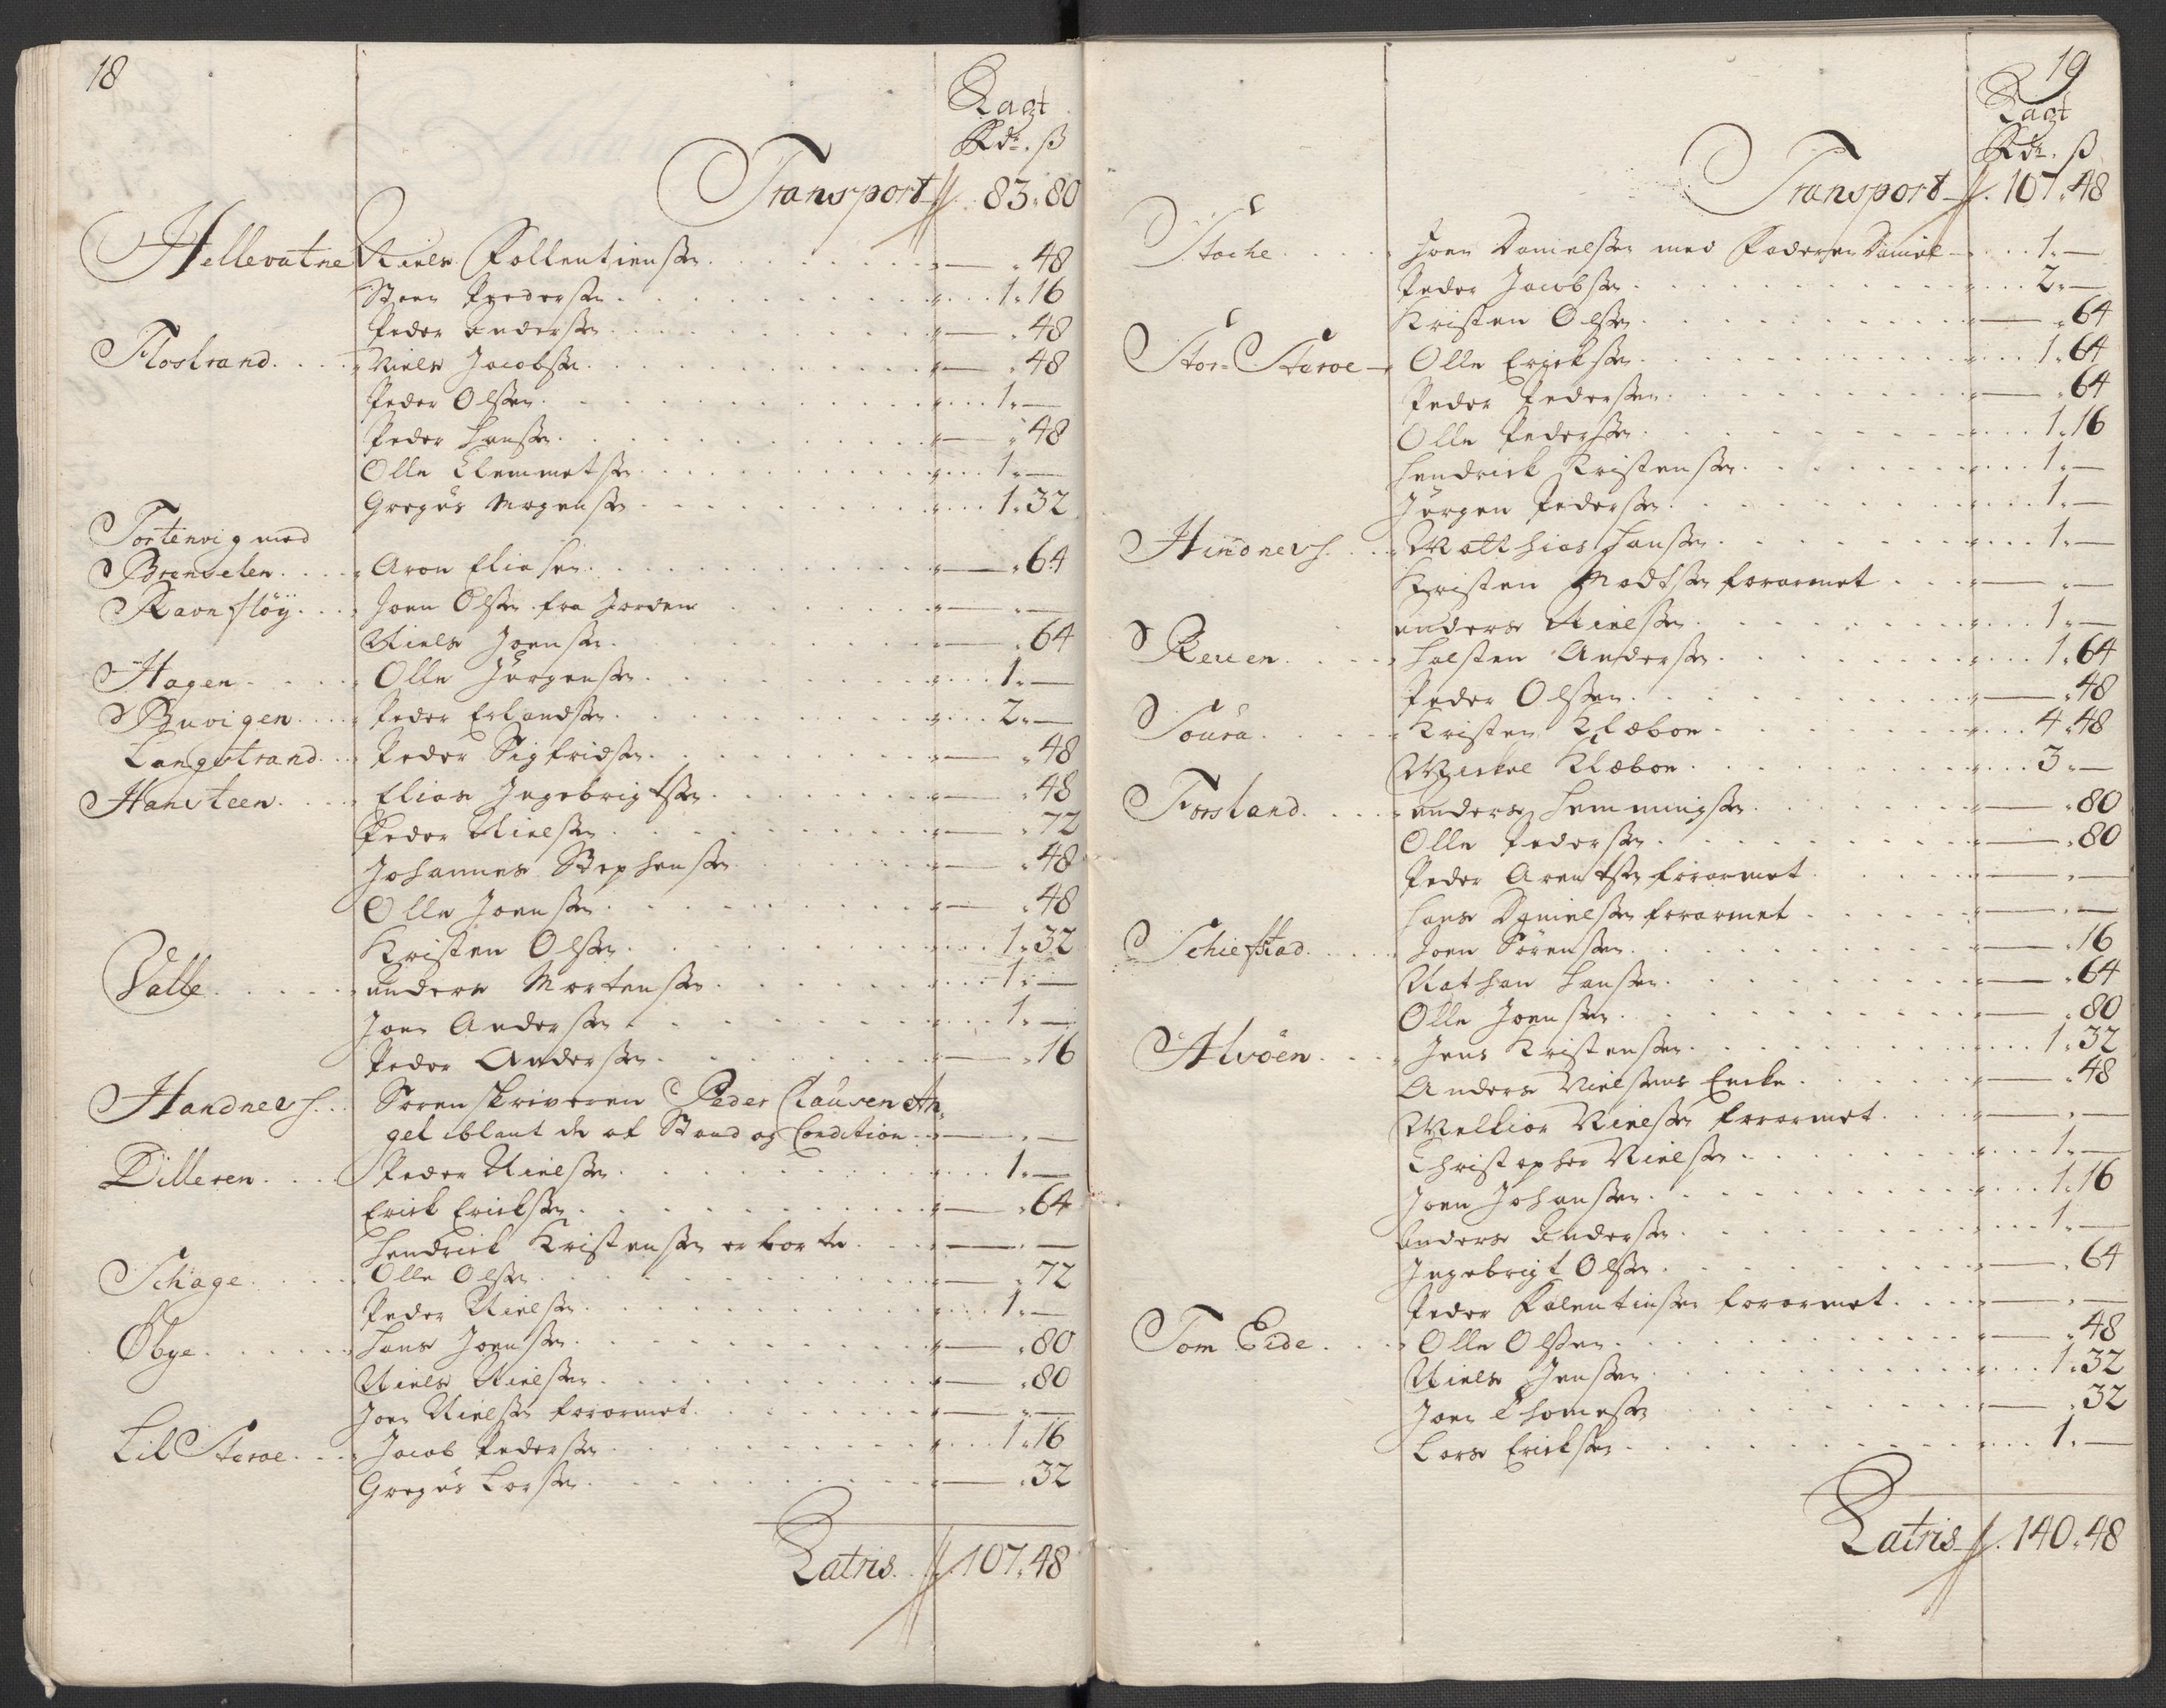 18
Lagt
Rdr. ß
Transport 83. 80
Hellevatne Niels Follentiensen 48
Steen Pedersen 1. 16
Peder Andersen 48
Flostrand Niels Jacobsen 48
Peder Olsen 1. —
Peder Hansen 48
Olle Clemmetsen 1. —
Gregus Mogensen 1. 32
Tortenvig med
Brenselen Aron Eliesen 64
Ravnfløÿ Joen Olsen fra Jorden — . —
Niels Joensen 64
Hagen Olle Jørgensen 1. —
Buvigen Peder Erlandsen 2. —
Langstrand Peder Sigfridsen 48
Hansteen Elias Ingebrigtsen 48
Peder Nielsen 72
Johannes Stephensen 48
Olle Joensen 48
Kristen Olsen 1. 32
Valle Anders Mortensen 1. —
Joen Andersen 1. —
Peder Andersen 16
Handnes Sorenskriveren Peder Clausen An-
gel iblant de af Stand og Condition — . —
Dilleren Peder Nielsen 1. —
Erick Ericksen 64
Hendrick Kristensen er borte — . —
Schage Olle Olsen 72
Peder Nielsen 1. —
Øbye Hans Joensen 80
Niels Nielsen 80
Joen Nielsen forarmet — . —
Lil Staroe Jacob Pedersen 1. 16
Gregus Larsen 32
Latris 107. 48
19
Lagt
Rdr. ß
Transport 107. 48
Stoche Joen Danielsen med Faderen Daniel 1. —
Peder Jacobsen 2. —
Kristen Olsen 64
Stor Staroe Olle Ericksen 1. 64
Peder Pedersen 64
Olle Pedersen 1. 16
Hendrick Kristensen 1. —
Jørgen Pedersen 1. —
Hindnes Matthias Hansen 1. —
Kristen Madtsen forarmet — . —
Anders Nielsen 1. —
Reuen Halsten Andersen 1. 64
Peder Olsen 48
Soura Kristen Klæboe 4. 48
Mickel Klæboe 3. —
Forsland Anders Hemmingsen 80
Olle Pedersen 80
Peder Arentsen forarmet — . —
Hans Danielsen forarmet — . —
Schiefstad Joen Sørensen 16
Nathan Hansen 64
Olle Joensen 80
Alvöen Jens Kristensen 1. 32
Anders Nielsens Encke 48
Melkior Nielsen forarmet — . —
Christopher Nielsen 1. —
Joen Johansen 1. 16
Anders Andersen 1. —
Ingebrigt Olsen 64
Peder Falentinsen forarmet — . —
Tom Eide Olle Olsen 48
Niels Jensen 1. 32
Joen Thomesen 32
Lars Ericksen 1. —
Latris 140. 48